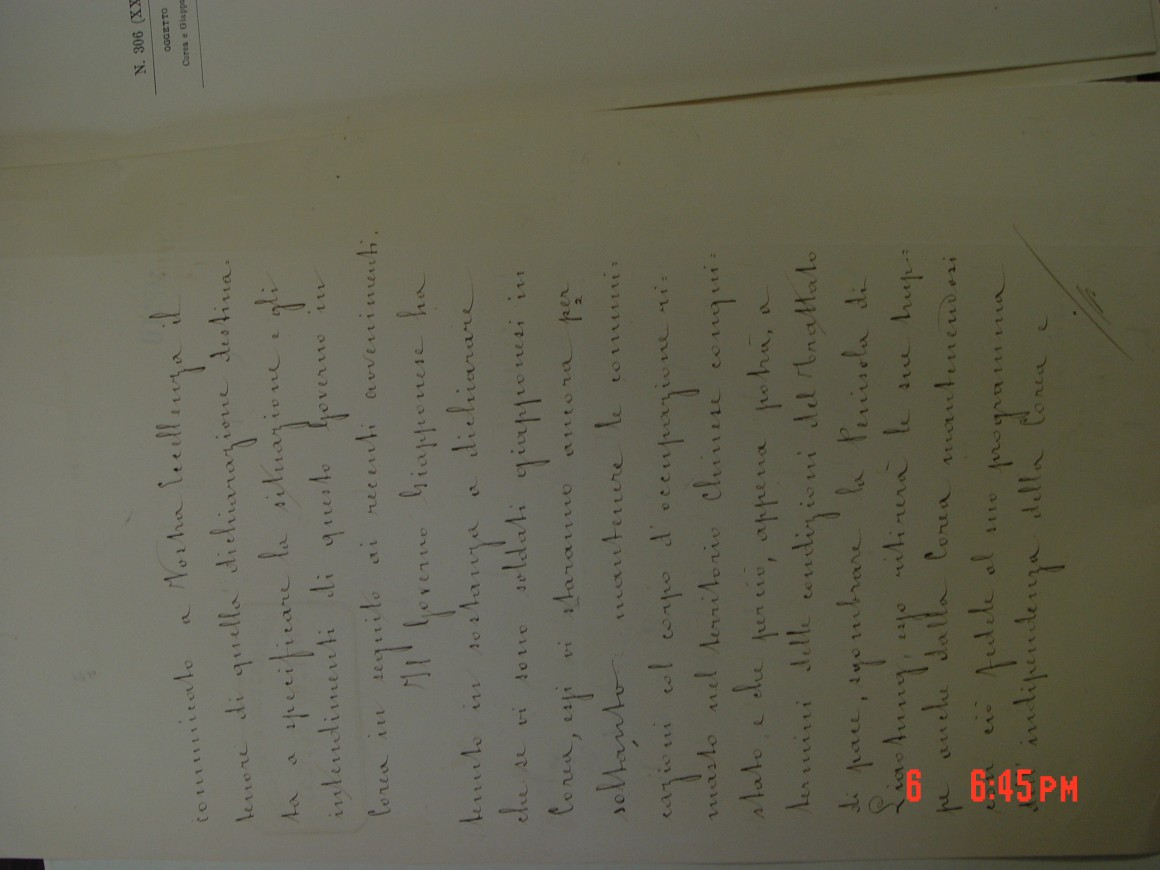 N. 306 (XX
OGGETTO
Corea e Giappo
comunicato a Vostra Eccellenza il
tenore di quella dichiarazione destina=
ta a specificare la situazione e gli
intendimenti di questo Governo in
Corea in seguito ai recenti avvenimenti.
Il Governo Giapponese ha
tenuto in sostanza a dichiarare
che se vi sono soldati giapponesi in
Corea, essi vi staranno ancora per
soltanto mantenere le comuni=
cazioni col corpo d'occupazione ri=
masto nel territorio Chinese conqui=
stato, e che perciò, appena potrà, a
termini delle condizioni del Trattato
di pace, sgombrare la Penisola di
Liaotung, esso ritirerà le sue trup=
pe anche dalla Corea mantenendosi
con ciò fedele al suo programma
dell'indipendenza della Corea e
6 6:45 PM